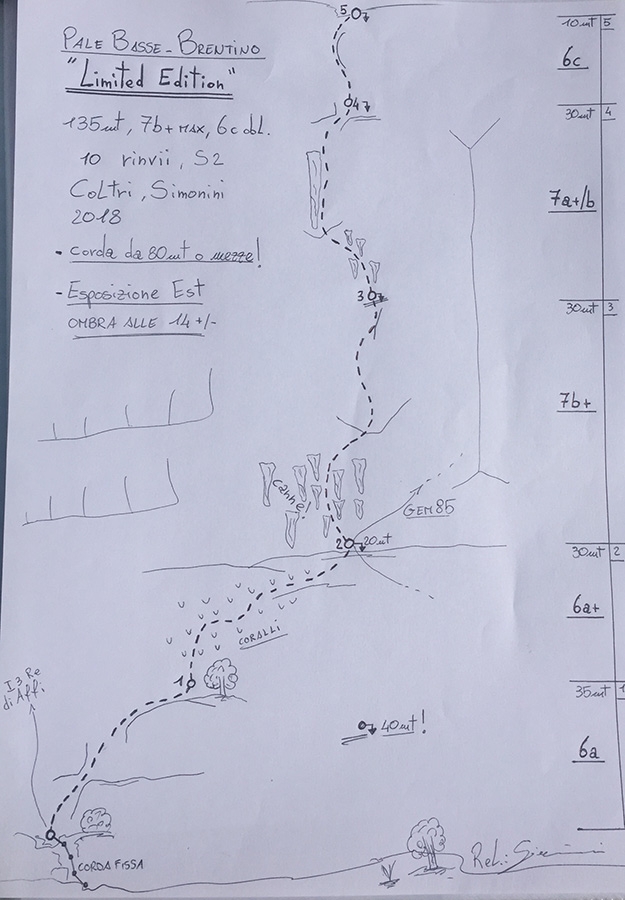 PALE BASSE - BRENTINO
"Limited Edition"
135mt, 7b+ MAX, 6c obl.
10 rinvii, S2
COLTRI, Simonini
2018
- corda da 80mt o mezze!
- Esposizione Est
OMBRA ALLE 14 +/-
5
4
3
canne!
GEM85
2
20mt
CORALLI
1
I 3 Re
di Affi
40mt!
CORDA FISSA
10mt 5
6c
30mt 4
7a+/b
30mt 3
7b+
30mt 2
6a+
35mt 1
6a
Rel.: